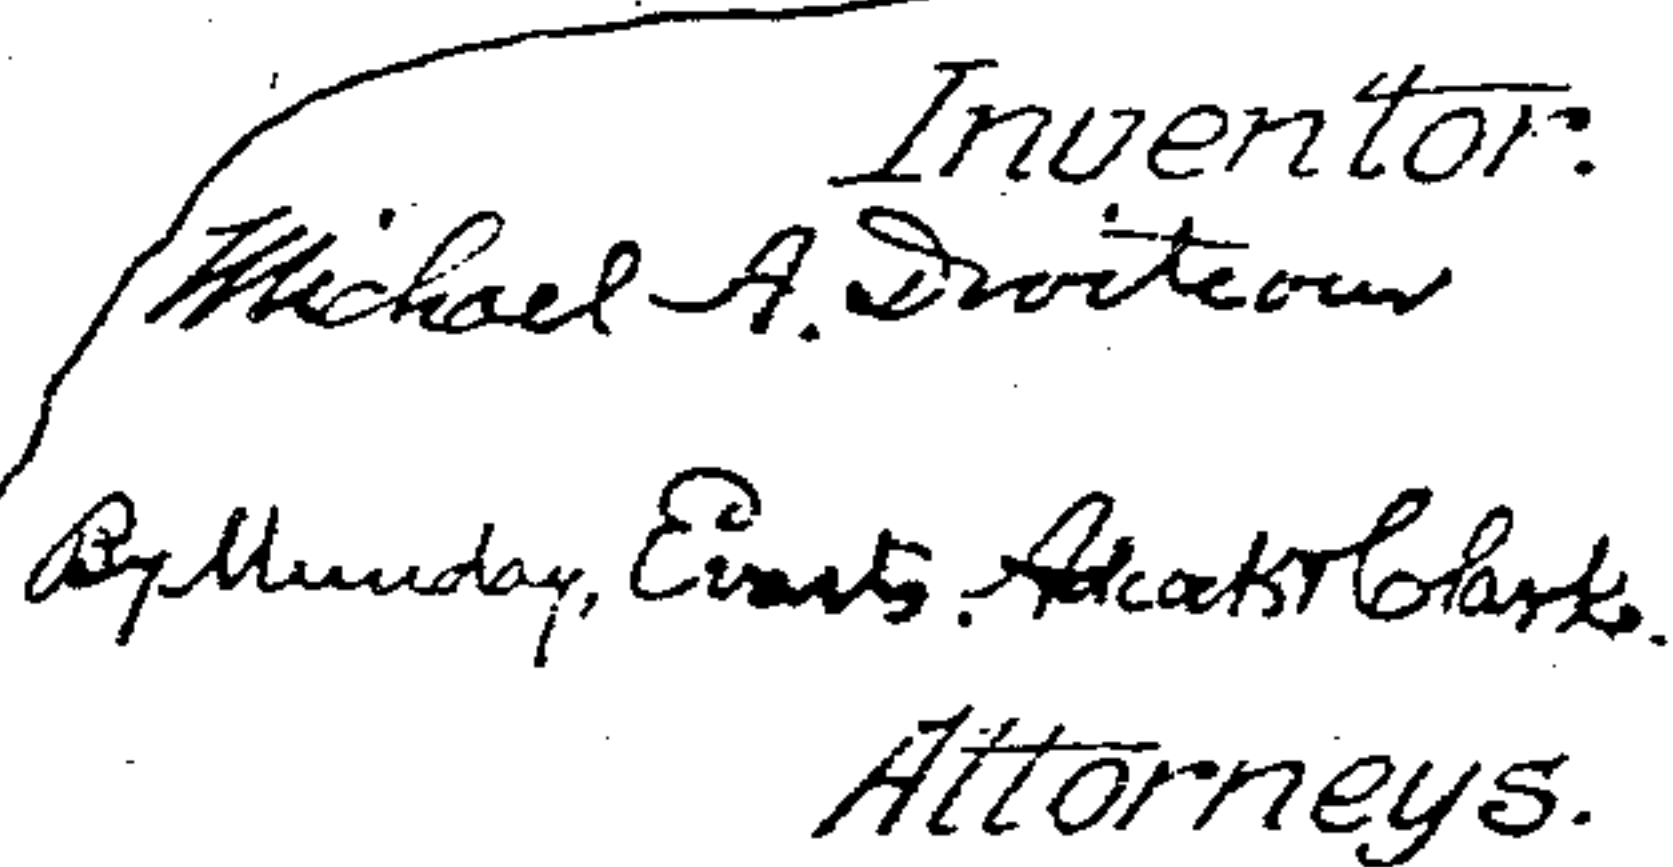 Inventor.
Michael A. Droitcour
By Munday, Evarts, Adcock & Clarke.
Attorneys.